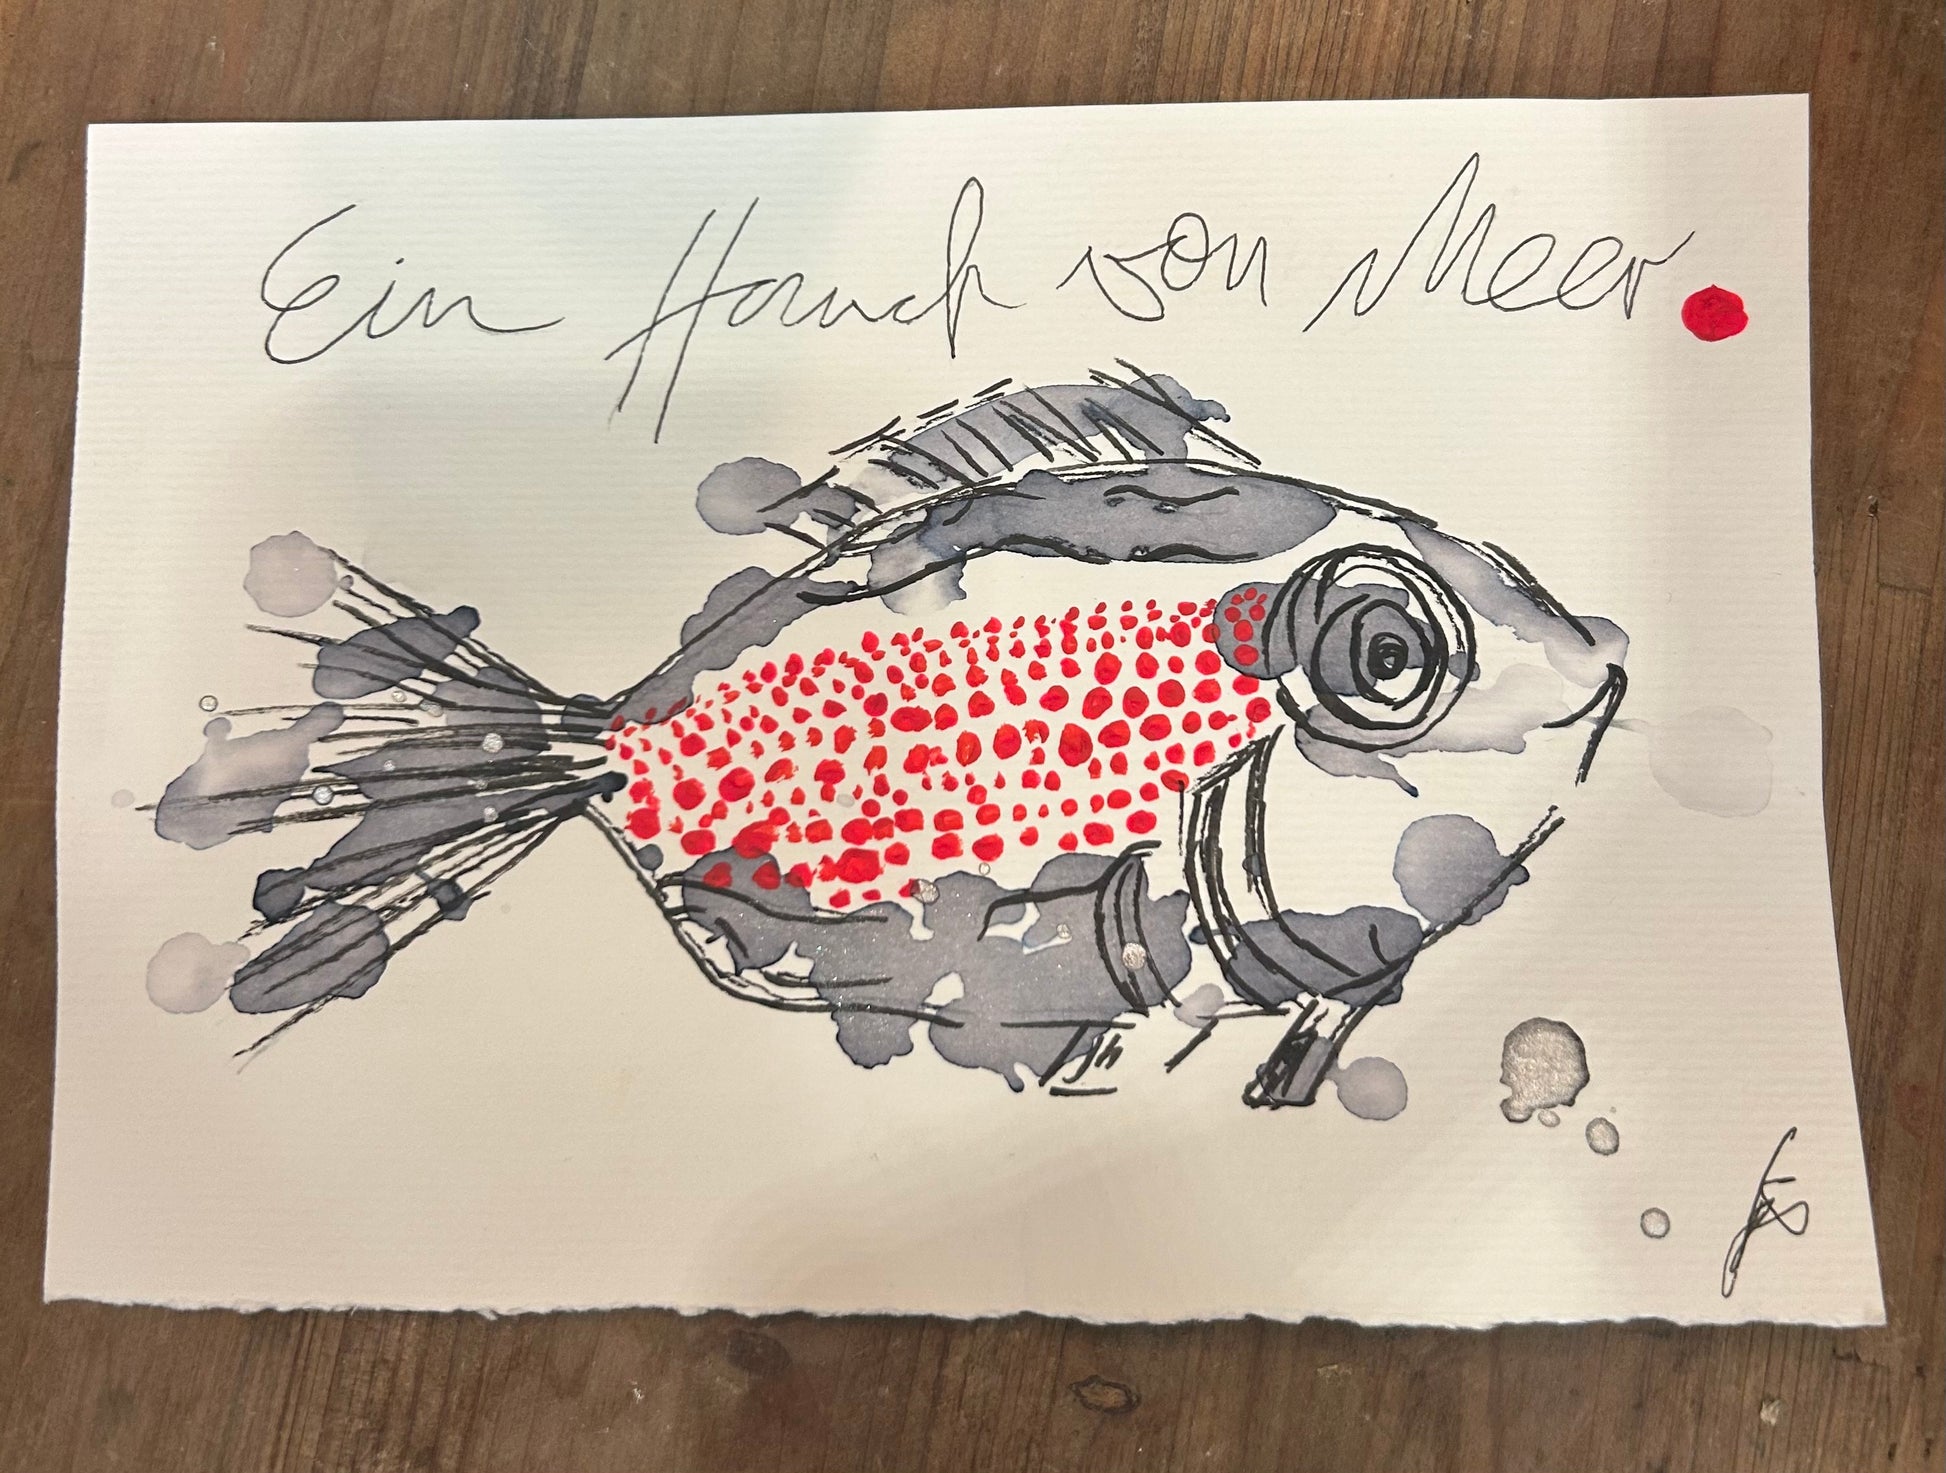 Ein Hauch von Meer.